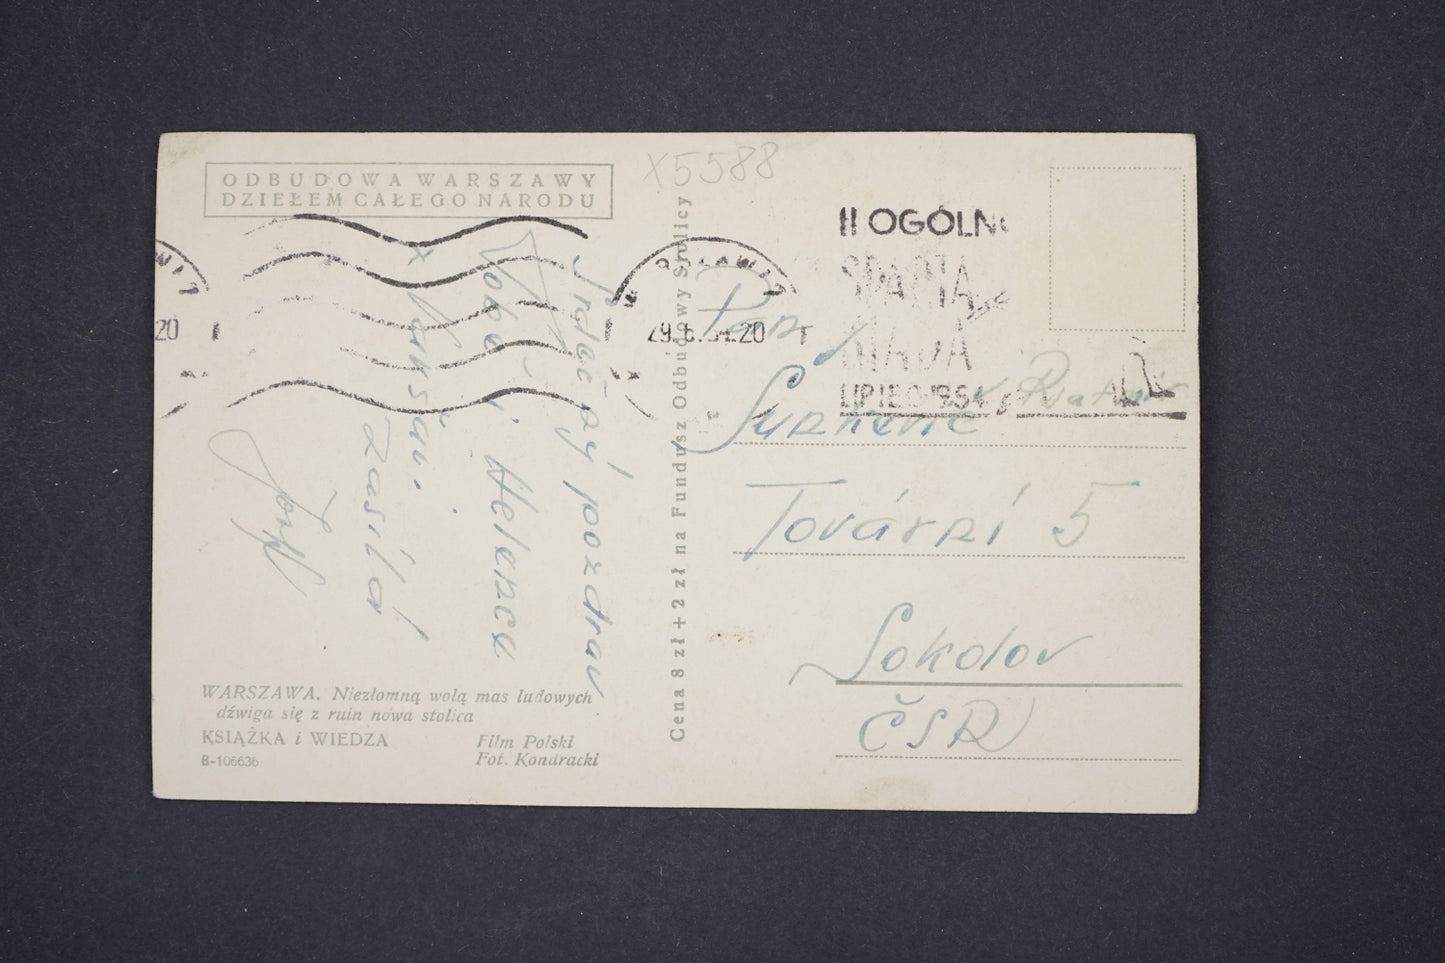 ODBUDOWA WARSZAWY
DZIEŁEM CAŁEGO NARODU
X5588
II OGÓLN
LIPIEC 1954
29.6.54.20
20
Srdečný pozdrav
Tobě i Helence
z Varšavi.
Zasílá
Josef
Cena 8 zł + 2 zł na Fundusz Odbudowy Stolicy
Pan
Tovární 5
Sokolov
ČSR
WARSZAWA. Niezłomną wolą mas ludowych
dźwiga się z ruin nowa stolica
KSIĄŻKA i WIEDZA
B-106636
Film Polski
Fot. Kondracki